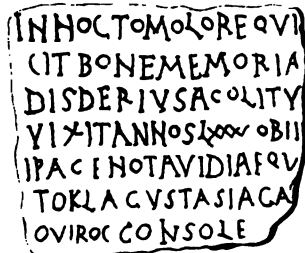 INHOCTOMOLOREQVI
CITBONEMEMORIA
DISDERIVSACOLITV
VIXITANNOSLXXXV OBII
IPACENOTAVIDIAEQV
TOKLACVSTASIAGA
OVIROCCONSOLE